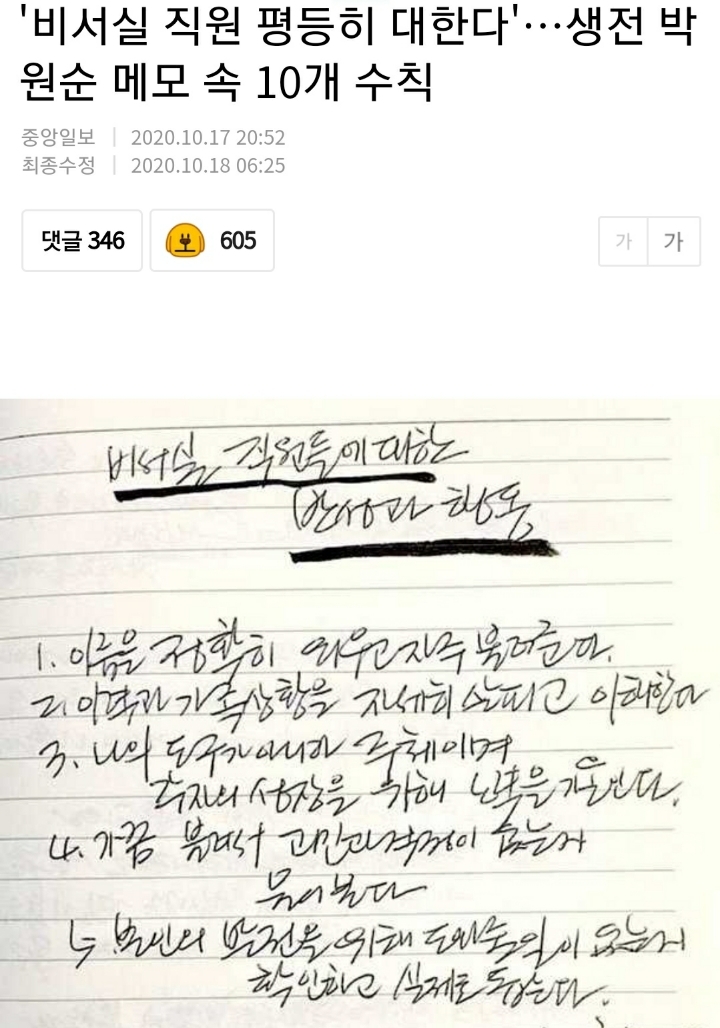 '비서실 직원 평등히 대한다'…생전 박
원순 메모 속 10개 수칙
중앙일보 | 2020.10.17 20:52
최종수정 | 2020.10.18 06:25
댓글 346
605
가 가
비서실 직원들에 대한
반성과 행동
1. 이름을 정확히 외우고 자주 불러준다.
2. 이력과 가족상황을 자세히 살피고 이해한다
3. 나의 도구가 아니라 주체이며
각자의 성장을 위해 노력을 기울인다.
4. 가끔 불러서 고민과 걱정이 없는지
물어본다
5. 본인의 발전을 위해 도와줄 일이 없는지
확인하고 실제로 돕는다.